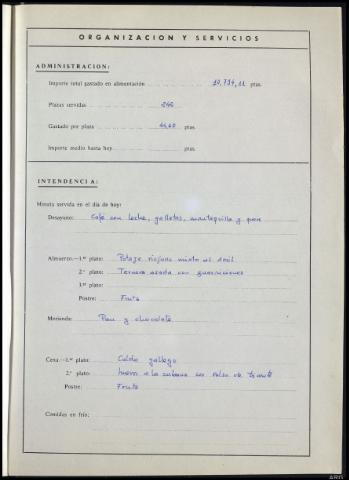 ORGANIZACION Y SERVICIOS
ADMINISTRACION:
Importe total gastado en alimentación 10.734,11 ptas.
Platos servidos 246
Gastado por plato ptas.
Importe medio hasta hoy ptas.
INTENDENCIA:
Minuta servida en el día de hoy:
Desayuno: Café con leche, galletas, mantequilla y pan
Almuerzo.—1.er plato: Potaje riojano mixto al
2.º plato: Ternera asada con guarniciones
3.er plato:
Postre: Fruta
Merienda: Pan y chocolate
Cena.—1.er plato: Caldo gallego
2.º plato: huevo a la cubana con salsa de tomate
Postre: Fruta
Comidas en frío: